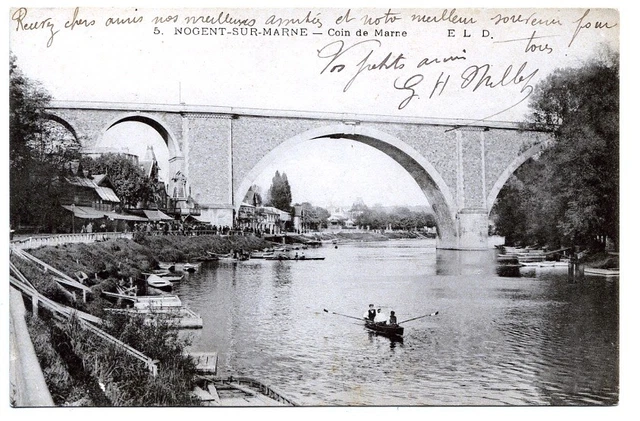 Recevez chers amis nos meilleures amitiés et notre meilleur souvenir pour
tous
5. NOGENT-SUR-MARNE — Coin de Marne E L D.
Vos petits amis
G H